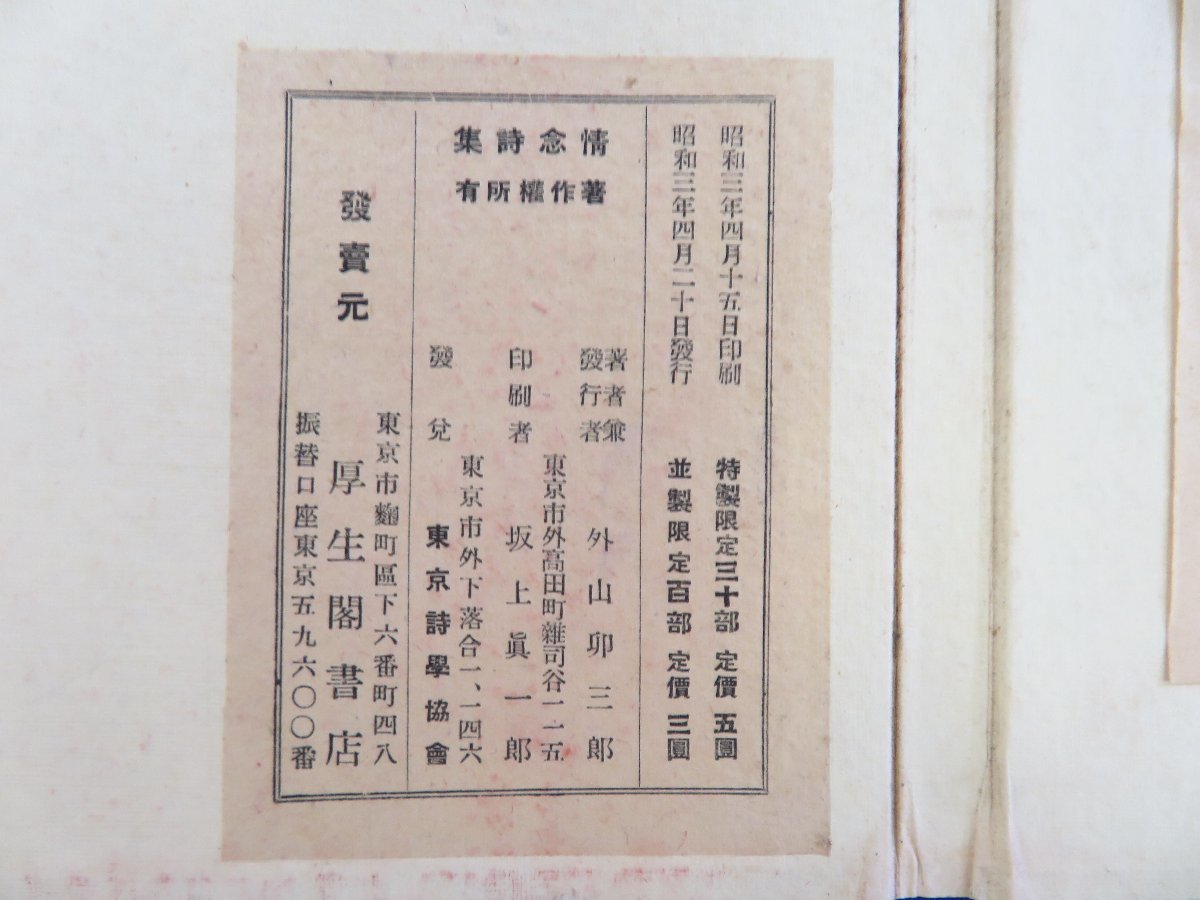 昭和三年四月十五日印刷 特製限定三十部 定價 五圓
昭和三年四月二十日發行 並製限定百部 定價 三圓
情念詩集
著作權所有
著者兼
發行者 外山卯三郎
東京市外高田町雜司谷一一五
印刷者 坂上眞一郎
東京市外下落合一、一四六
發兌 東京詩學協會
發賣元
東京市麴町區下六番町四八
厚生閣書店
振替口座東京五九六〇〇番